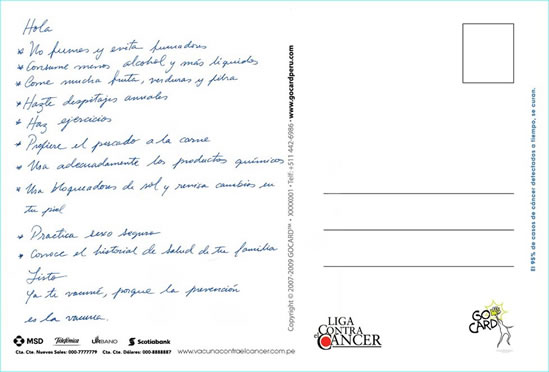 Hola
* No fumes y evita fumadores
* Consume menos alcohol y más líquidos
* Come mucha fruta, verduras y fibra
* Hazte despistajes anuales
* Haz ejercicios
* Prefiere el pescado a la carne
* Usa adecuadamente los productos químicos
* Usa bloqueadores de sol y revisa cambios en
tu piel
* Practica sexo seguro
* Conoce el historial de salud de tu familia
Listo
Ya te vacuné, porque la prevención
es la vacuna.
MSD Telefónica URBANO Scotiabank
Cta. Cte. Nuevos Soles: 000-7777779 Cta. Cte. Dólares: 000-8888887 www.vacunacontraelcancer.com.pe
Copyright © 2007-2009 GOCARD™ • XXXX001 • Telf: +511 442-6986 • www.gocardperu.com
LIGA
CONTRA
el CÁNCER
GO
CARD
El 98% de casos de cáncer detectados a tiempo, se curan.